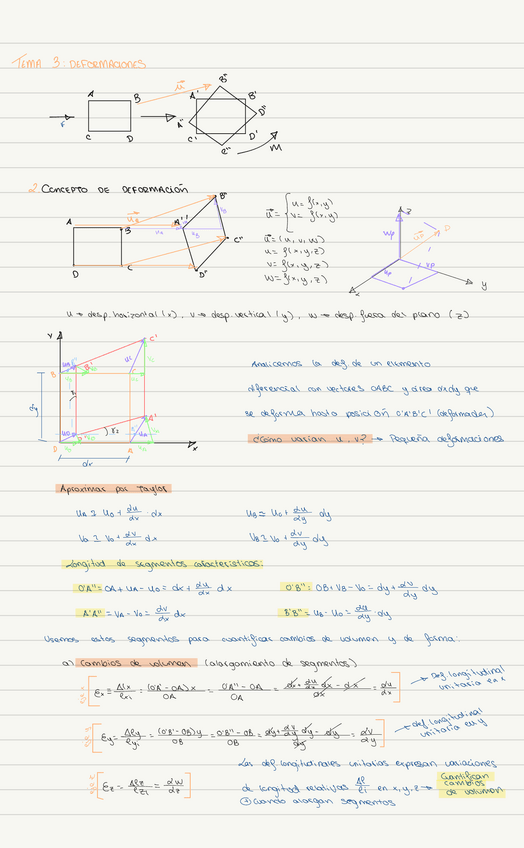 TEMA 3: DEFORMACIONES
A B C D
F
u⃗
A' B' C' D'
A" B" C" D"
M
2. CONCEPTO DE DEFORMACIÓN
u⃗ = { u = f(x,y)
v = f(x,y)
u⃗ = (u, v, w)
u = f(x,y,z)
v = f(x,y,z)
w = f(x,y,z)
z
y
x
u → desp. horizontal (x), v → desp. vertical (y), w → desp. fuera del plano (z)
Analicemos la def de un elemento
diferencial con vectores OABC y área dxdy que
se deforma hasta posición O'A'B'C' (deformada)
¿Cómo varían u, v? → Pequeña deformaciones
Aproximar por Taylor
uA ≅ uo + du/dx · dx    uB ≅ uo + du/dy dy
vA ≅ vo + dv/dx dx    vB ≅ vo + dv/dy dy
Longitud de segmentos característicos:
O'A" = OA + uA - uo = dx + du/dx dx    O'B" = OB + vB - vo = dy + dv/dy dy
A'A" = vA - vo = dv/dx dx    B'B" = uB - uo = du/dy dy
Usemos estos segmentos para cuantificar cambios de volumen y de forma:
a) Cambios de volumen (alargamiento de segmentos)
εx = Δlx/lxi = (O'A' - OA)x/OA = O'A" - OA/OA = dx + du/dx dx - dx/dx = du/dx → Def longitudinal
unitaria en x
εy = Δly/lyi = (O'B' - OB)y/OB = O'B" - OB/OB = dy + dv/dy dy - dy/dy = dv/dy → def longitudinal
unitaria en y
εz = Δlz/lzi = dw/dz
Las def longitudinales unitarias expresan variaciones
de longitud relativas Δl/li en x, y, z → cuantifican
cambios
de volumen
⊕ Cuando alargan segmentos